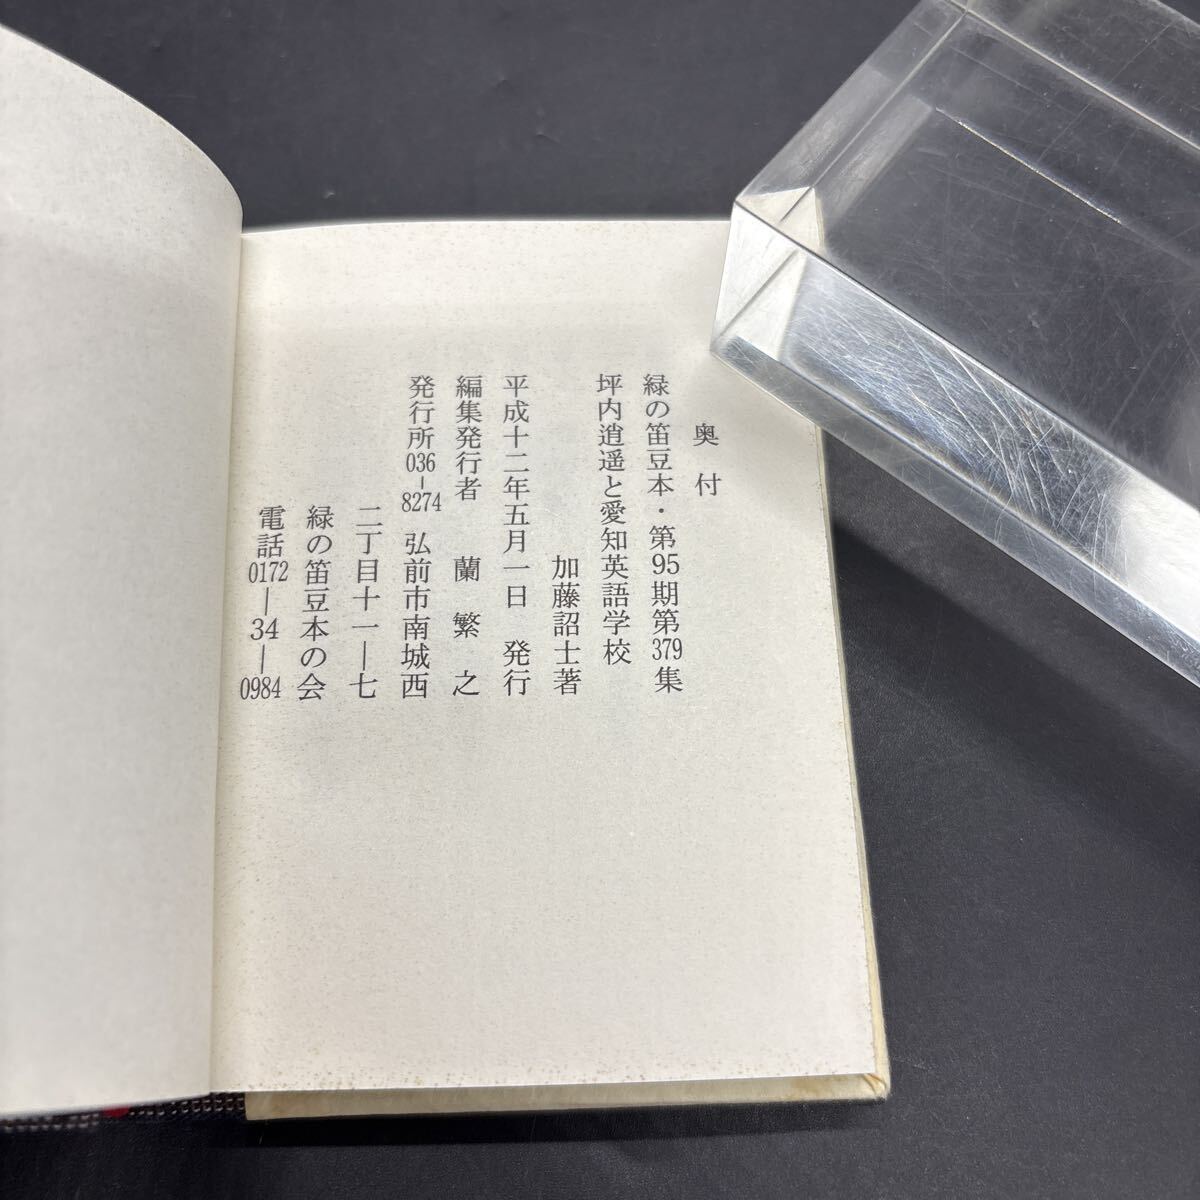 奥付
緑の笛豆本・第95期第379集
坪内逍遥と愛知英語学校
加藤詔士著
平成十二年五月一日 発行
編集発行者 蘭繁之
発行所036-8274 弘前市南城西
二丁目十一―七
緑の笛豆本の会
電話0172―34―0984